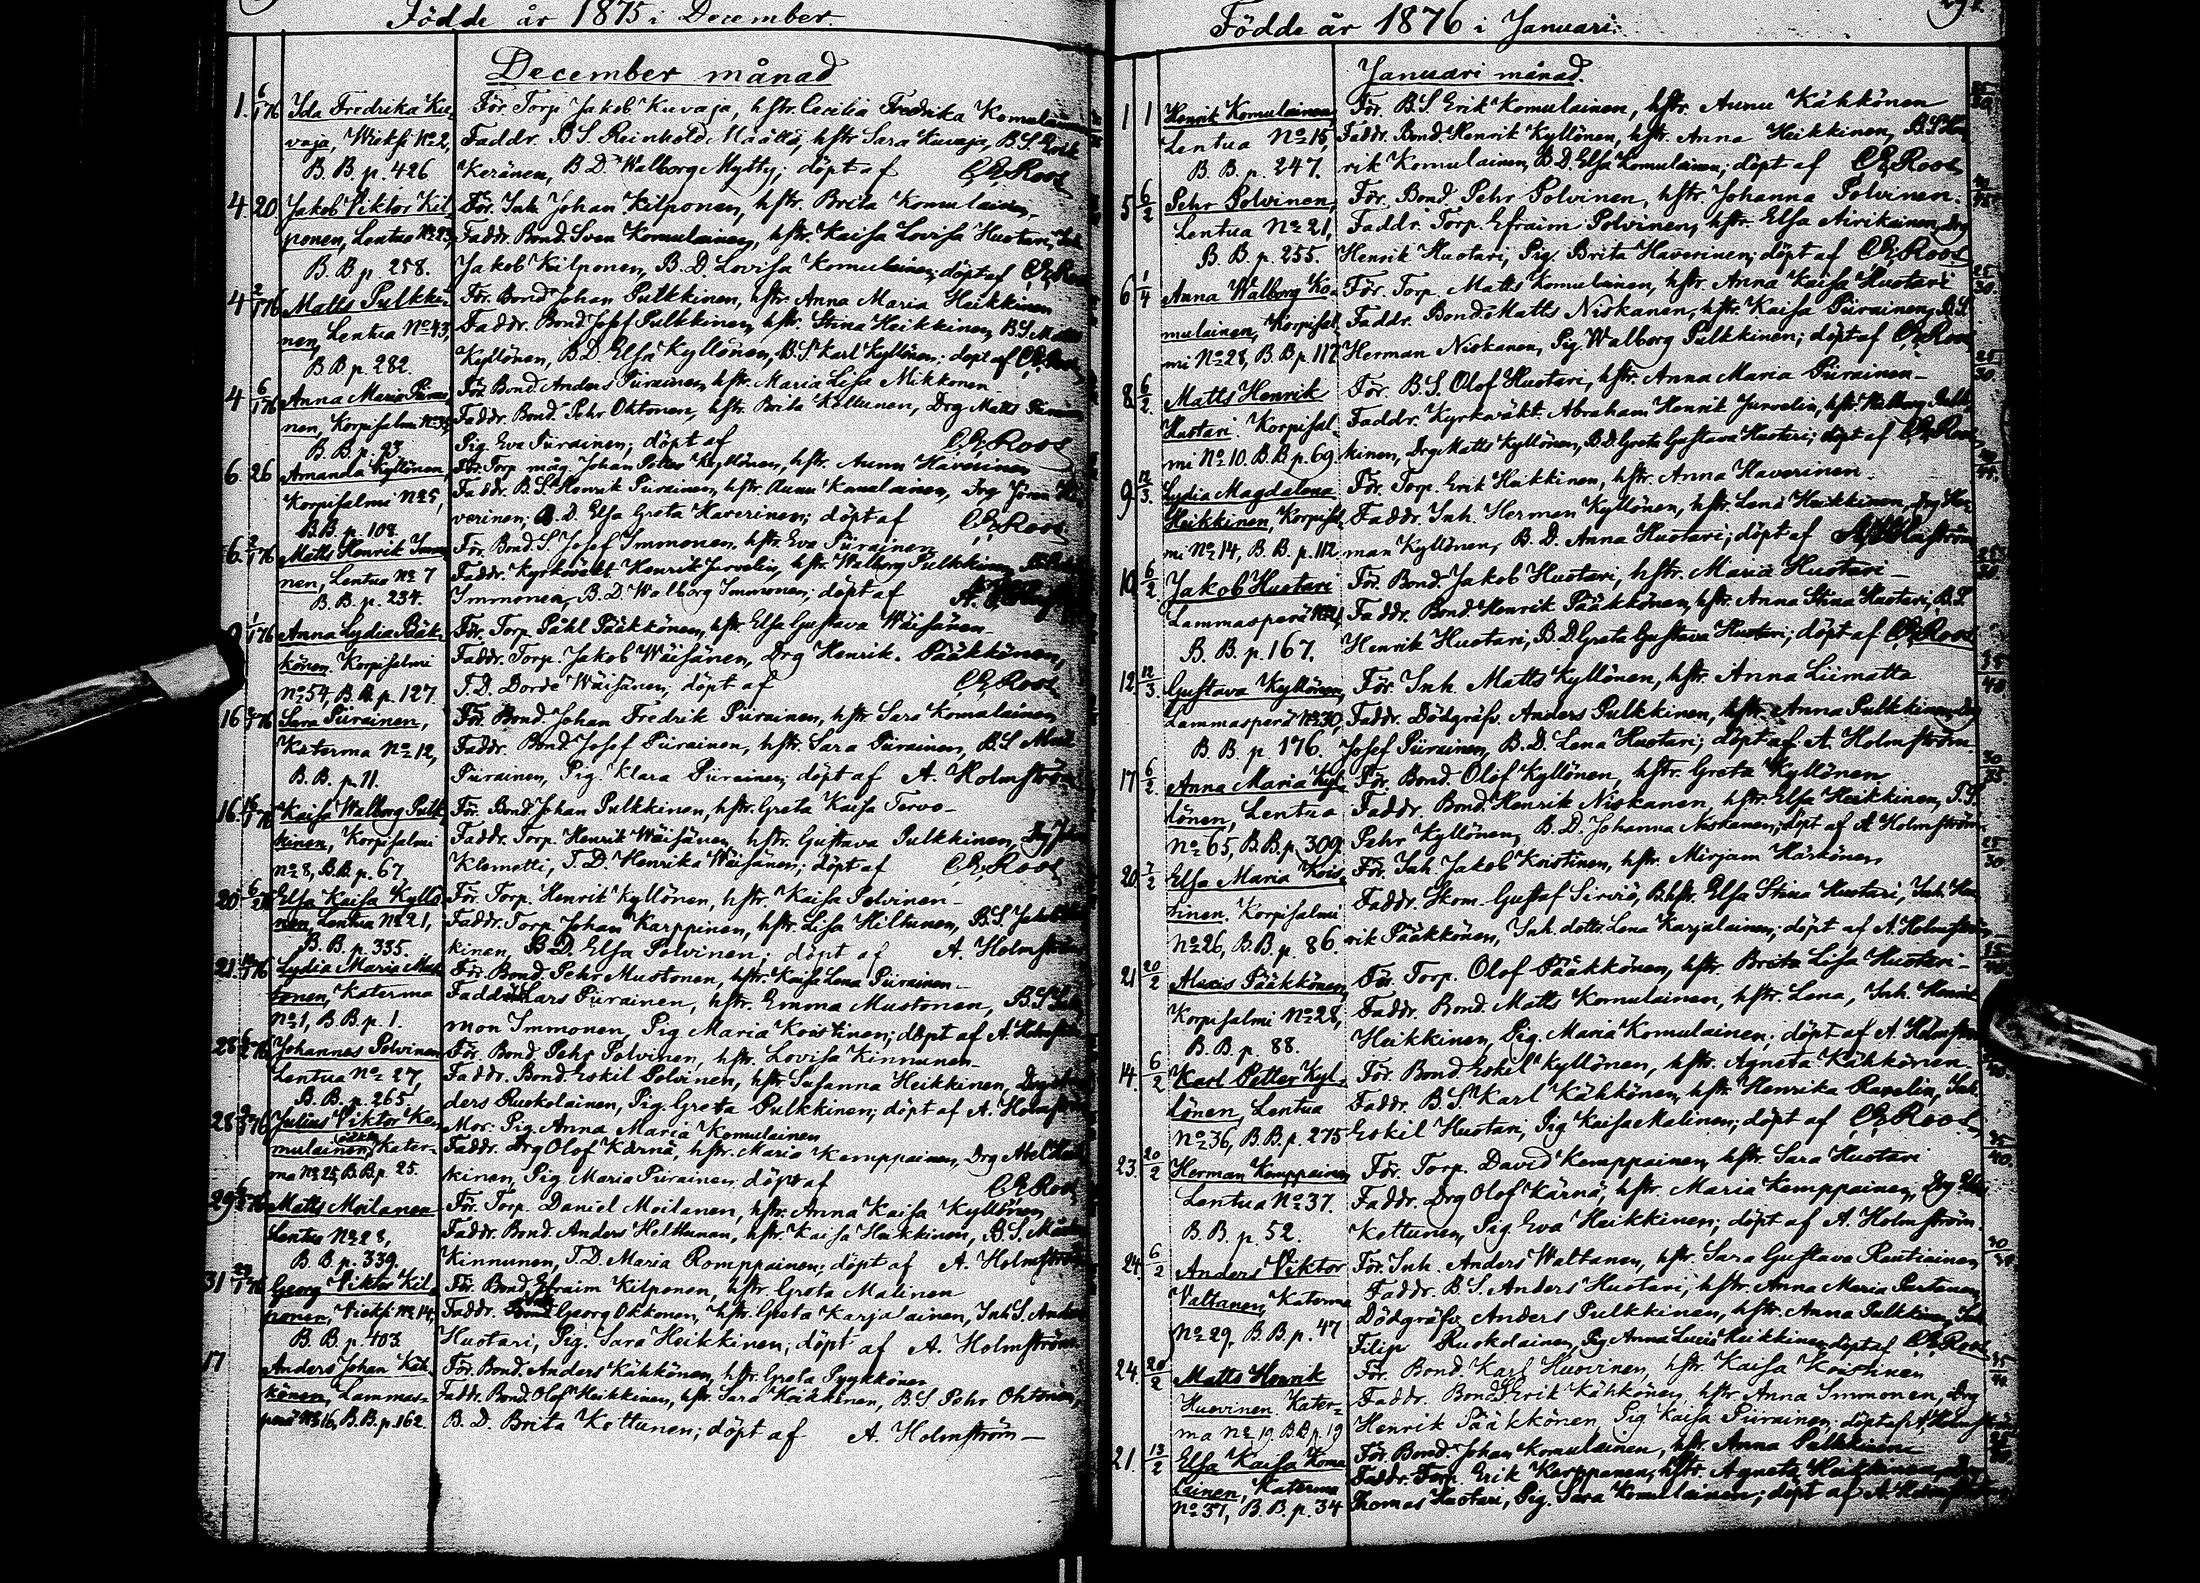 Födde år 1875 i December.
December månad
1. 6/1 76 Ida Fredrika Ku- För. Torp. Jakob Kuvaja, hstr. Cecilia Fredrika Komulainen
vaja, Wieksi No 2, Faddr. B. S. Reinhold Määttä, hstr Sara Kuvaja, B. S. Erik
B. B. p. 426. Keränen, B. D. Walborg Mytty; döpt af C. E. Roos
4 20 Jakob Viktor Kil- För. Inh. Johan Kilponen, hstr. Brita Komulainen
ponen, Lentua No 23, Faddr. Bond. Sven Komulainen, hstr. Kaisa Lovisa Huotari, Inh
B. B. p. 258. Jakob Kilponen, B. D. Lovisa Komulainen; döpt af C. E. Roos
4 2/1 76 Matts Pulkki- För. Bond Johan Pulkkinen, hstr. Anna Maria Heikkinen
nen, Lentua No 43, Faddr. Bond. Josef Pulkkinen, hstr. Stina Heikkinen, B. S. Matts
B. B. p. 282. Kyllönen, B. D. Elsa Kyllönen, B. S. Karl Kyllönen; döpt af C. E. Roos
4 6/1 76 Anna Maria Piirai- För. Bond Anders Piirainen, hstr. Maria Lisa Mikkonen
nen, Korpisalmi Faddr. Bond. Pehr Oktonen, hstr. Brita Keltunen, Drg Matts Piirainen
B. B. p. 93. Pig. Eva Piirainen; döpt af C. E. Roos
6. 26 Amanda Kyllönen, För. Torp. måg. Johan Petter Kyllönen, hstr. Anna Haverinen
Korpisalmi No 5, Faddr. B. S. Henrik Piirainen, hstr. Anna Komulainen, Drg Ha-
B. B. p. 108. verinen; B. D. Elsa Greta Haverinen; döpt af C. E. Roos
6. 2/1 76 Matts Henrik Immo- För. Bond. S. Josef Immonen, hstr. Eva Piirainen
nen, Lentua No 7 Faddr. Kyrkväkt. Henrik Jurvelin, hstr. Walborg Pulkkinen
B. B. p. 234. Immonen, B. D. Walborg Immonen; döpt af A. Holmström
9 1/1 76 Anna Lydia Pääk- För. Torp. Påhl Pääkkönen, hstr. Elsa Gustava Wäisänen
könen. Korpisalmi Faddr. Torp. Jakob Wäisänen, Drg Henrik Pääkkönen,
No 54, B. B. p. 127. T. D. Dorde Wäisänen; döpt af C. E. Roos
16 76 Sara Piirainen, För. Bond. Johan Fredrik Piirainen, hstr. Sara Komulainen
Katerma No 12, Faddr. Bond Josef Piirainen, hstr. Sara Piirainen, B. S.
B. B. p. 11. Piirainen, Pig. Klara Piirainen; döpt af A. Holmström
16. 76 Kaisa Walborg Pulk- För. Bond. Johan Pulkkinen, hstr. Greta Kaisa Tervo
kinen, Korpisalmi Faddr. Torp. Henrik Wäisänen, hstr. Gustava Pulkkinen, Drg Johan
No 8, B. B. p. 67 Klemetti, T. D. Henrika Wäisänen; döpt af C. E. Roos
20 6/2 Elsa Kaisa Kyllö- För. Torp. Henrik Kyllönen, hstr. Kaisa Polvinen
nen, Lentua No 21, Faddr. Torp. Johan Karppinen, hstr. Lisa Hiltunen, B. S. Jakob
B. B. p. 335. kinen, B. D. Elsa Polvinen; döpt af A. Holmström
21 76 Lydia Maria Mus- För. Bond. Pehr Mustonen, hstr. Kaisa Lena Piirainen
tonen, Katerma Faddr. Lars Piirainen, hstr. Emma Mustonen, B. S.
No 1, B. B. p. 1. mon Immonen, Pig Maria Koistinen; döpt af A. Holmström
28 76 Johannes Polvinen För. Bond. Pehr Polvinen, hstr. Lovisa Kinnunen
Lentua No 27, Faddr. Bond. Eskil Polvinen, hstr. Susanna Heikkinen, Drg An-
B. B. p. 265. ders Ruokolainen, Pig. Greta Pulkkinen; döpt af A. Holmström
28 76 Julius Viktor Ko- Mor. Pig. Anna Maria Komulainen
mulainen, Kater- Faddr. Drg Olof Kärnä, hstr. Maria Kemppainen, Drg Abel
ma No 25, B. B. p. 25. kinen, Pig Maria Piirainen döpt af C. E. Roos
29 6/2 76 Matts Moilanen För. Torp. Daniel Moilanen, hstr. Anna Kaisa Kyllönen
Lentua No 28, Faddr. Bond. Anders Helttunen, hstr. Kaisa Heikkinen, B. S.
B. B. p. 339. Kinnunen, T. D. Maria Romppainen; döpt af A. Holmström
31 1/76 Georg Viktor Kil- För. Bond. Efraim Kilponen, hstr. Greta Malinen
ponen, Vieksi No 14, Faddr. Georg Okkonen, hstr. Greta Karjalainen, Inh. S. Anders
B. B. p. 403. Huotari, Pig. Sara Heikkinen; döpt af A. Holmström
17 Anders Johan Käh- För. Bond. Anders Kähkönen, hstr. Greta Pyykkönen
könen, Lammas- Faddr. Bond. Olof Heikkinen, hstr. Sara Heikkinen, B. S. Pehr Oktonen,
perä No 16, B. B. p. 162. B. D. Brita Kettunen; döpt af A. Holmström
Födde år 1876 i Januari.
Januari månad.
1 1 Henrik Komulainen, För. B. S. Erik Komulainen, hstr. Anna Kähkönen
Lentua No 15, Faddr. Bond. Henrik Kyllönen, hstr. Anna Heikkinen, B. S. Hen-
B. B. p. 247. rik Komulainen, B. D. Elsa Komulainen; döpt af C. E. Roos
5 6/2 Pehr Polvinen, För. Bond. Pehr Polvinen, hstr. Johanna Polvinen.
Lentua No 21, Faddr. Torp. Efraim Polvinen, hstr. Elsa Airikainen, Drg
B. B. p. 255. Henrik Huotari, Pig. Brita Haverinen; döpt af C. E. Roos
6 1/4 Anna Walborg Ko- För. Torp. Matts Komulainen, hstr. Anna Kaisa Huotari 25/30
mulainen, Korpisal- Faddr. Bond. Matts Niskanen, hstr. Kaisa Piirainen, B. S.
mi No 28, B. B. p. 117 Herman Niskanen, Pig. Walborg Pulkkinen; döpt af C. E. Roos
8 6/2 Matts Henrik För. B. S. Olof Huotari, hstr. Anna Maria Piirainen 25/30
Huotari. Korpisal- Faddr. Kyrkväkt. Abraham Henrik Jurvelin, hstr. Walborg Pulk-
mi No 10. B. B. p. 69. kinen, Drg. Matts Kyllönen, B. D. Greta Gustava Huotari; döpt af C. E. Roos
9 12/3 Lydia Magdalena För. Torp. Erik Heikkinen, hstr. Anna Haverinen.
Heikkinen, Korpisal- Faddr. Inh. Herman Kyllönen, hstr. Lena Heikkinen, Drg Her-
mi No 14, B. B. p. 112 man Kyllönen, B. D. Anna Huotari; döpt af A. Holmström
10 6/2 Jakob Huotari För. Bond. Jakob Huotari, hstr. Maria Huotari
Lammasperä Faddr. Bond. Henrik Pääkkönen, hstr. Anna Stina Huotari, B. S.
B. B. p. 167. Henrik Huotari, B. D. Greta Gustava Huotari; döpt af C. E. Roos
12 12/3 Gustava Kyllönen, För. Inh. Matts Kyllönen, hstr. Anna Liimatta 35/40
Lammasperä No 30, Faddr. Dödgräfv. Anders Pulkkinen, hstr. Anna Pulkkinen, Drg
B. B. p 176. Josef Piirainen, B. D. Lena Huotari; döpt af A. Holmström
17 6/2 Anna Maria Kyl- För. Bond. Olof Kyllönen, hstr. Greta Kyllönen 30/35
lönen, Lentua Faddr. Bond. Henrik Niskanen, hstr. Elsa Heikkinen, T. S.
No 65, B. B. p. 309. Pehr Kyllönen, B. D. Johanna Niskanen; döpt af A Holmström
20 7/2 Elsa Maria Kois- För. Inh. Jakob Koistinen, hstr. Mirjam Härkönen 25/30
tinen. Korpisalmi Faddr. Skom. Gustaf Sirviö, B. hstr. Elsa Stina Huotari, Inh. Hen-
No 26, B. B. p. 86 rik Pääkkönen, Inh. dottr Lena Karjalainen; döpt af A. Holmström
21 20/2 Alexis Pääkkönen, För. Torp. Olof Pääkkönen, hstr. Brita Lisa Huotari
Korpisalmi No 28, Faddr. Bond. Matts Komulainen, hstr. Lena, Inh. Henrik
B. B. p. 88. Heikkinen, Pig. Maria Komulainen; döpt af A. Holmström
14. 6/2 Karl Petter Kyl- För. Bond Eskil Kyllönen, hstr. Agneta Kähkönen
lönen, Lentua Faddr. B. S. Karl Kähkönen, hstr. Henrika Ravelin, Inh.
No 36, B. B. p. 275 Eskil Huotari, Pig Kaisa Malinen; döpt af C. E. Roos
23. 20/2 Herman Kemppainen För. Torp. David Kemppainen, hstr. Sara Huotari 35/40
Lentua No 37. Faddr. Drg Olof Kärnä, hstr. Maria Kemppainen, Drg
B. B. p. 52. Kettunen, Pig. Eva Heikkinen; döpt af A. Holmström
24. 6/2 Anders Viktor För. Inh. Anders Waltanen, hstr. Sara Gustava Rautiainen
Valtanen, Katerma Faddr. B. S. Anders Huotari, hstr. Anna Maria Partanen,
No 29, B. B. p. 47 Dödgräfv. Anders Pulkkinen, hstr. Anna Pulkkinen, Inh
Filip Ruokolainen, Pig Anna Lucia Heikkinen; döpt af C. E. Roos
24. 20/2 Matts Henrik För. Bond. Karl Huovinen, hstr. Kaisa Koistinen
Huovinen. Kater- Faddr. Bond. Erik Kähkönen, hstr. Anna Immonen, Drg
ma No 19 B. B. p. 19 Henrik Pääkkönen, Pig Kaisa Piirainen; döpt af A. Holmström
21 13/2 Elsa Kaisa Komu- För. Bond. Johan Komulainen, hstr. Anna Pulkkinen
lainen, Katerma Faddr. Torp. Erik Karppanen, hstr. Agneta Heikkinen, Drg
No 37, B. B. p. 34 Thomas Huotari, Pig. Sara Komulainen; döpt af A. Holmström